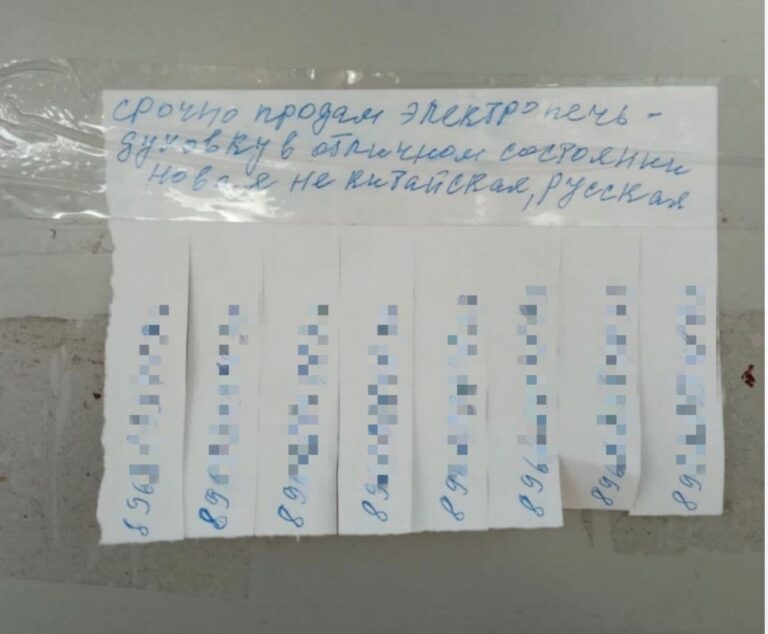 срочно продам электропечь-
духовку в отличном состоянии
новая не китайская, русская
896
896
896
89
896
896
896
89